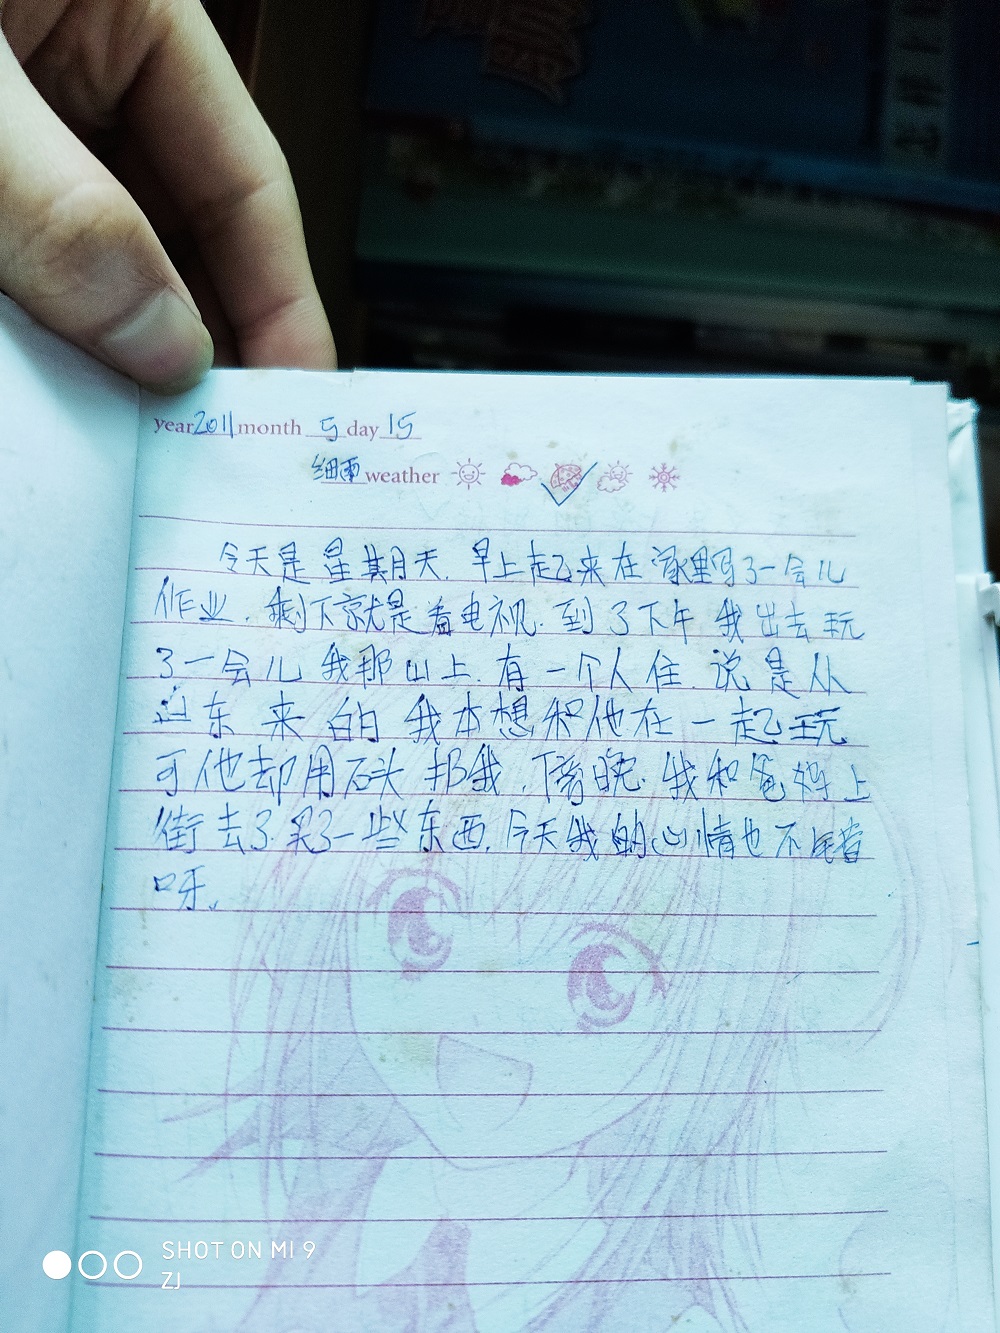 year 2011 month 5 day 15
细雨 weather
今天是星期天.早上起来在家里写了一会儿
作业.剩下就是看电视.到了下午我出去玩
了一会儿我那山上.有一个人住.说是从
东来的我本想和他在一起玩
可他却用石头我.傍晚.我和爸妈上
街去了.买了一些东西.今天我的心情也不错
呀。
SHOT ON MI 9
ZJ